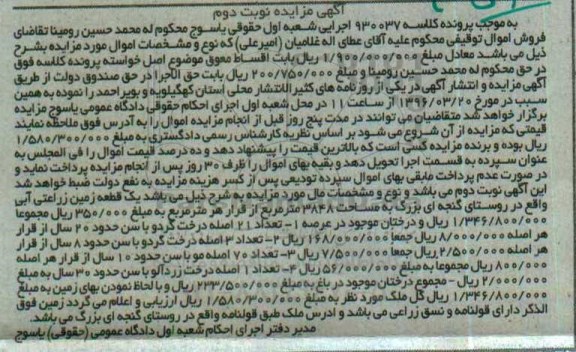 آگهی مزایده نوبت دوم
به موجب پرونده کلاسه ۹۳۰۰۳۷ اجرایی شعبه اول حقوقی یاسوج محکوم له محمد حسین رومینا تقاضای
فروش اموال توقیفی محکوم علیه آقای عطای اله غلامیان (امیرعلی) که نوع و مشخصات اموال مورد مزایده بشرح
ذیل می باشد معادل مبلغ ریال بابت اقساط معوق موضوع اصل خواسته پرونده کلاسه فوق
در حق محکوم له محمد حسین رومینا و مبلغ ۲۰۰/۷۵۰/۰۰۰ ریال بابت حق الاجرا در حق صندوق دولت از طریق
آگهی مزایده و انتشار آگهی در یکی از روزنامه های کثیر الانتشار محلی استان کهگیلویه و بویراحمد را نموده به همین
سبب در مورخ ۱۳۹۶/۰۳/۲۰ از ساعت ۱۱ در محل شعبه اول اجرای احکام حقوقی دادگاه عمومی یاسوج مزایده
برگزار خواهد شد متقاضیان می توانند در مدت پنج روز قبل از انجام مزایده اموال را به آدرس فوق ملاحظه نمایند
قیمتی که مزایده از آن شروع می شود بر اساس نظریه کارشناس رسمی دادگستری به مبلغ ۱/۵۸۰/۳۰۰/۰۰۰
ریال بوده و برنده مزایده کسی است که بالاترین قیمت را پیشنهاد دهد و ده درصد قیمت اموال را فی المجلس به
عنوان سپرده به قسمت اجرا تحویل دهد و بقیه بهای اموال را ظرف ۳۰ روز پس از انجام مزایده پرداخت نماید و
در صورت عدم پرداخت مابقی بهای اموال سپرده تودیعی پس از کسر هزینه مزایده به نفع دولت ضبط خواهد شد
این آگهی نوبت دوم می باشد و نوع و مشخصات مال مورد مزایده به شرح ذیل می باشد یک قطعه زمین زراعتی آبی
واقع در روستای گنجه ای بزرگ به مساحت ۳۸۴۸ مترمربع از قرار هر مترمربع به مبلغ ۳۵۰/۰۰۰ ریال مجموعا
۱/۳۴۶/۸۰۰/۰۰۰ ریال و درختان موجود در عرصه ۱- تعداد ۲۱ اصله درخت گردو با سن حدود ۲۰ سال از قرار
هر اصله ۸/۰۰۰/۰۰۰ ریال جمعا ۱۶۸/۰۰۰/۰۰۰ ریال ۲- تعداد ۳ اصله درخت گردو با سن حدود ۸ سال از قرار
هر اصله ۲/۵۰۰/۰۰۰ ریال جمعا ۷/۵۰۰/۰۰۰ ریال ۳- تعداد ۷۰ اصله مو با سن حدود ۱۰ سال از قرار هر اصله
۸۰۰/۰۰۰ ریال مجموعا به مبلغ ۵۶/۰۰۰/۰۰۰ ریال ۴- تعداد ۱ اصله درخت زردآلو با سن حدود ۳۰ سال به مبلغ
۲/۰۰۰/۰۰۰ ریال - مجموع درختان موجود در باغ به مبلغ ۲۳۳/۵۰۰/۰۰۰ ریال و با لحاظ نمودن بهای زمین به مبلغ
۱/۳۴۶/۸۰۰/۰۰۰ ریال کل ملک مورد نظر به مبلغ ۱/۵۸۰/۳۰۰/۰۰۰ ریال ارزیابی و اعلام می گردد زمین فوق
الذکر دارای قولنامه و نسق زراعی می باشد و آدرس ملک طبق قولنامه واقع در روستای گنجه ای بزرگ می باشد.
مدیر دفتر اجرای احکام شعبه اول دادگاه عمومی (حقوقی) یاسوج